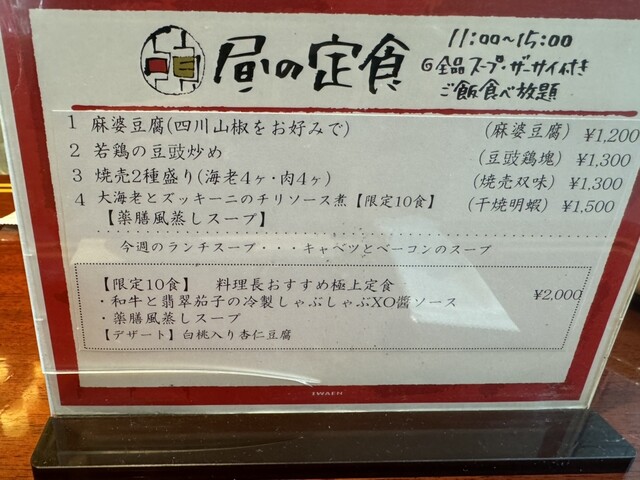 昼の定食
11:00~15:00
全品スープ・ザーサイ付き
ご飯食べ放題
1 麻婆豆腐(四川山椒をお好みで) (麻婆豆腐) ¥1,200
2 若鶏の豆豉炒め (豆豉鶏塊) ¥1,300
3 焼売2種盛り(海老4ヶ・肉4ヶ) (焼売双味) ¥1,300
4 大海老とズッキーニのチリソース煮【限定10食】 (干焼明蝦) ¥1,500
【薬膳風蒸しスープ】
今週のランチスープ・・・キャベツとベーコンのスープ
【限定10食】 料理長おすすめ極上定食 ¥2,000
・和牛と翡翠茄子の冷製しゃぶしゃぶXO醬ソース
・薬膳風蒸しスープ
【デザート】白桃入り杏仁豆腐
IWAEN